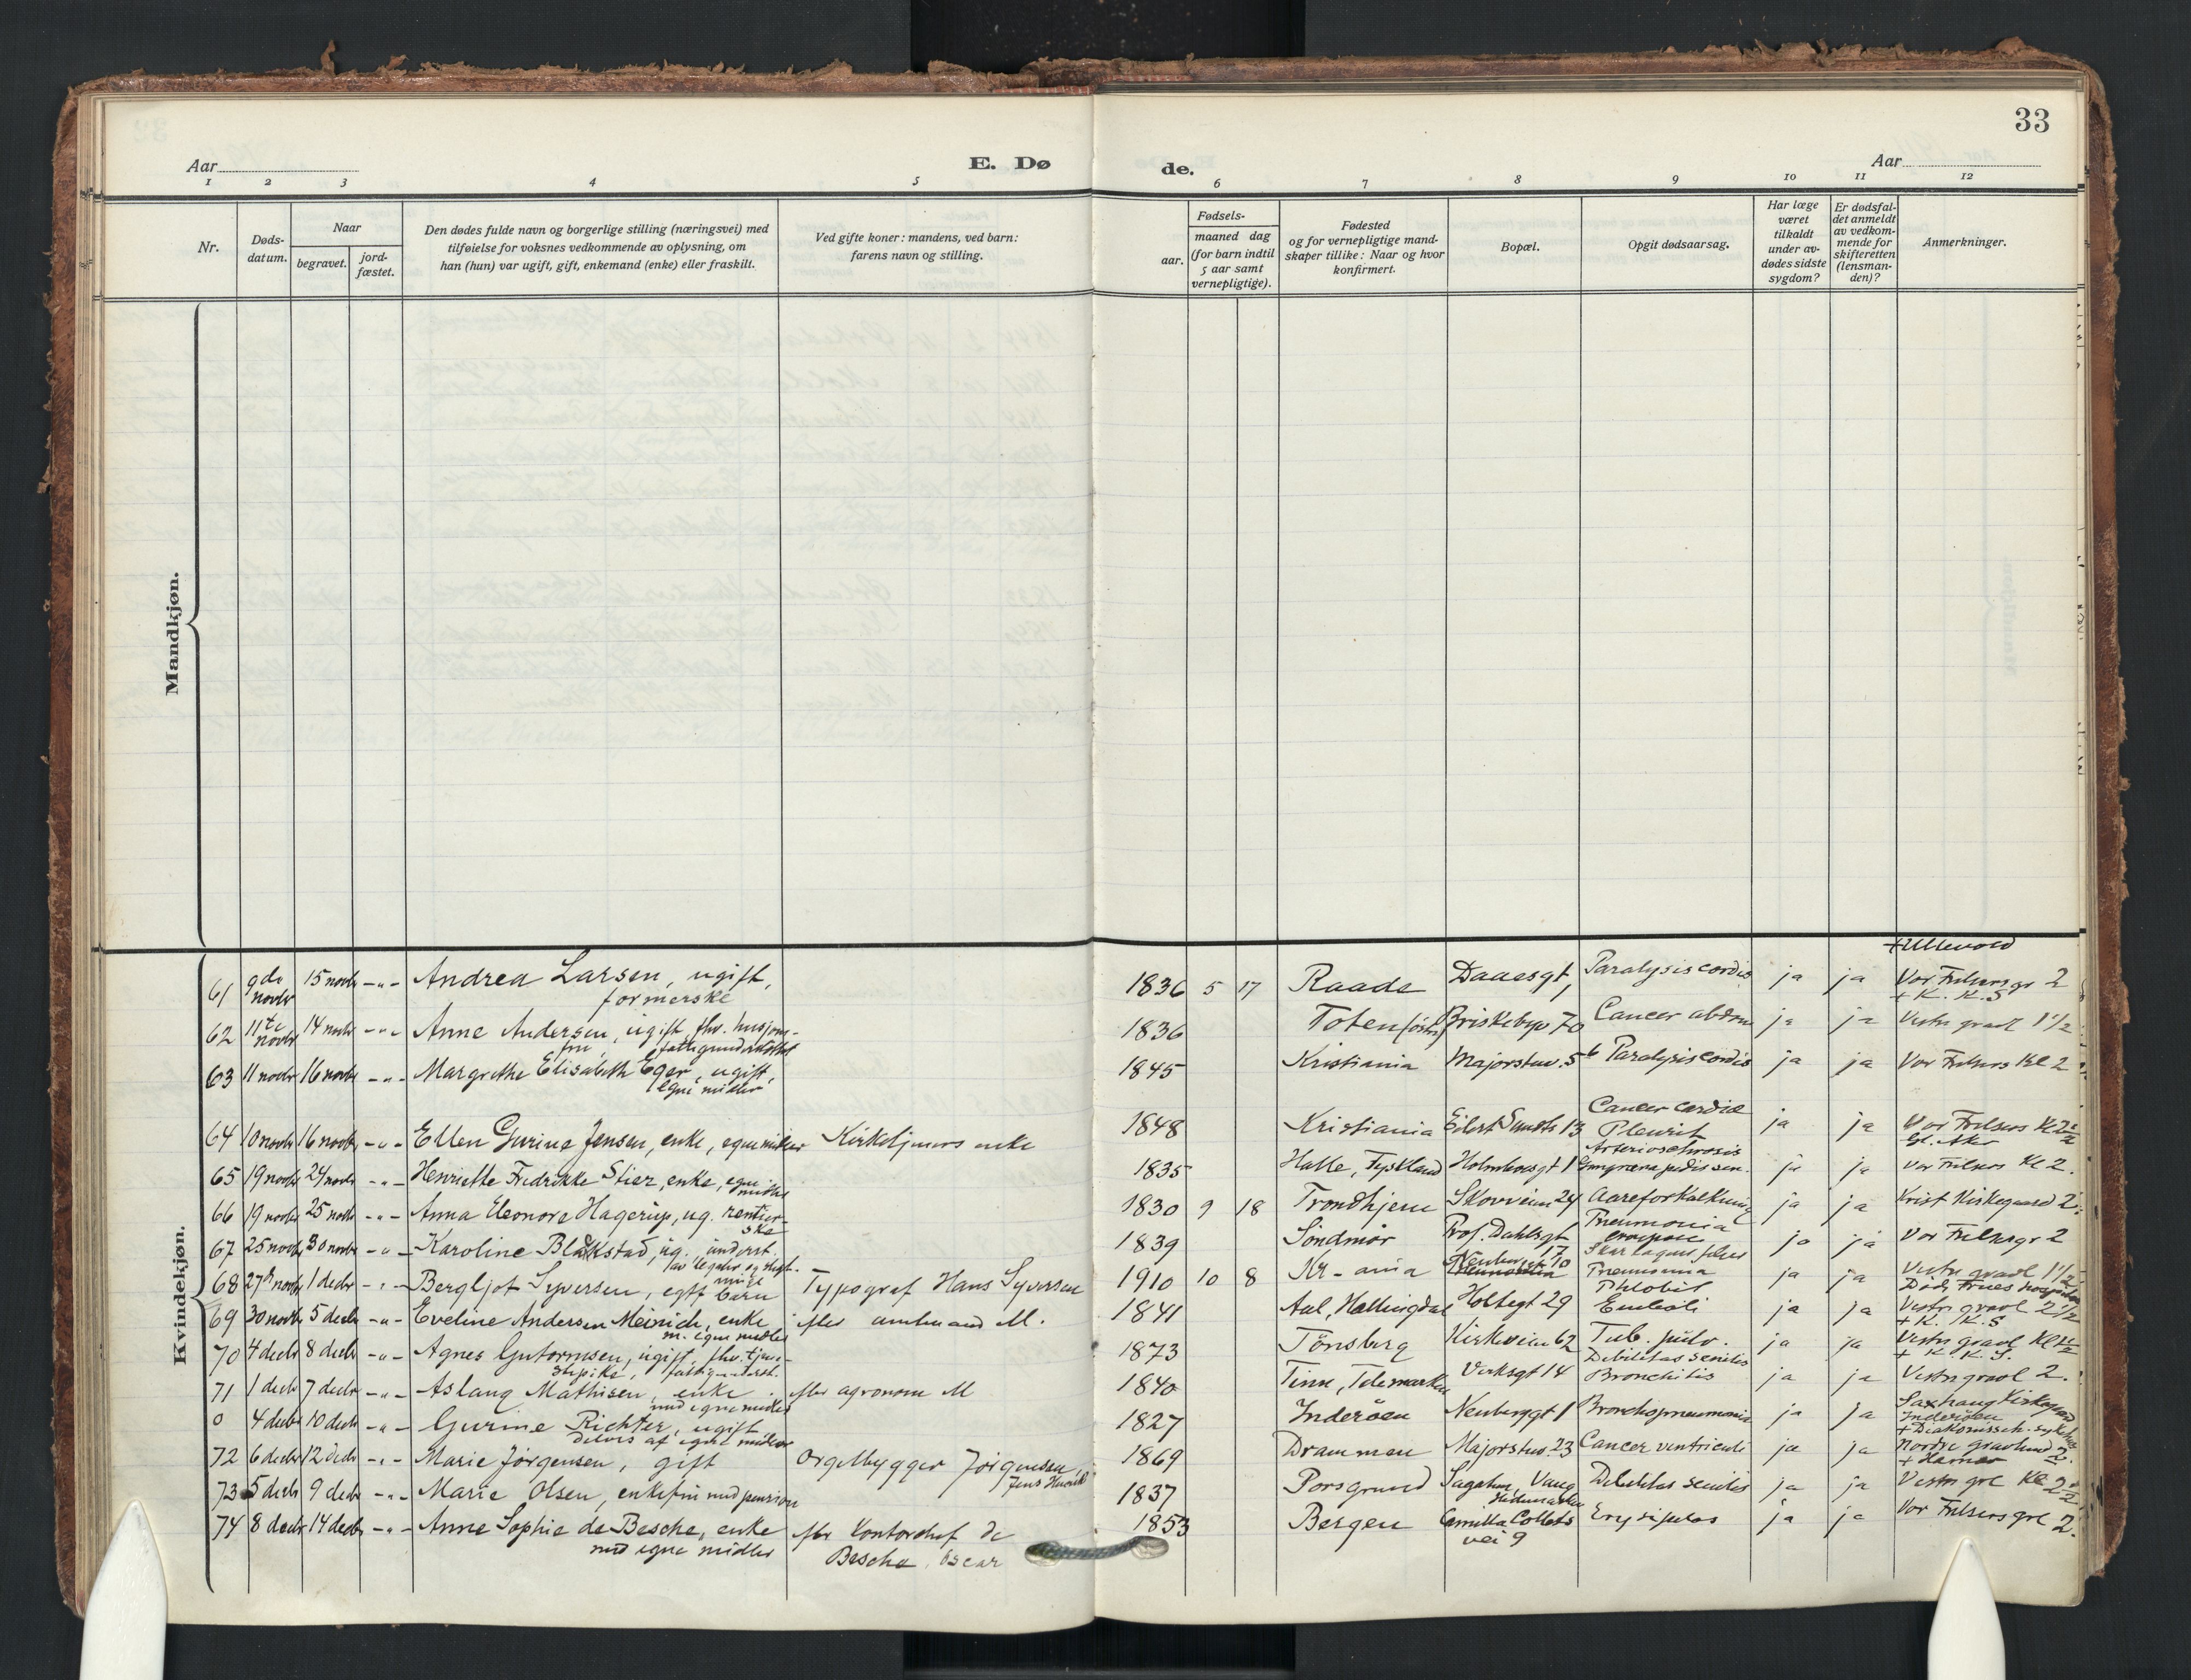 33
Aar
E. Dø
de.
Aar
1 2 3 4 5 6 7 8 9 10 11 12
Nr.
Døds-
datum.
Naar
begravet.
jord-
fæstet.
Den dødes fulde navn og borgerlige stilling (næringsvei) med
tilføielse for voksnes vedkommende av oplysning, om
han (hun) var ugift, gift, enkemand (enke) eller fraskilt.
Ved gifte koner: mandens, ved barn:
farens navn og stilling.
Fødsels-
aar.
maaned dag
(for barn indtil
5 aar samt
vernepligtige).
Fødested
og for vernepligtige mand-
skaper tillike: Naar og hvor
konfirmert.
Bopæl.
Opgit dødsaarsag.
Har læge
været
tilkaldt
under av-
dødes sidste
sygdom?
Er dødsfal-
det anmeldt
av vedkom-
mende for
skifteretten
(lensman-
den)?
Anmerkninger.
Mandkjøn.
Kvindekjøn.
+ Ullevold
61 9de novbr 15 novbr -"- Andrea Larsen, ugift, 1836 5 17 Raade Daaesgt, Paralysis cordis ja ja Vor Frelsers gr 2
formerske + K. K. S
62 11te novbr 14 novbr -"- Anne Andersen, ugift, fhv. husjom- 1836 Toten Briskebyv 70 Cancer abdom ja ja Vestre gravl 1 1/2
fru, fattigunderstøttet
63 11 novbr 16 novbr -"- Margrethe Elisabeth Eger, ugift, 1845 Kristiania Majorstuv. 5 b Paralysis cordis ja ja Vor Frelsers Kl 2
egne midler
64 10 novbr 16 novbr -"- Ellen Gurine Jensen, enke, egne midler Kirketjeners enke 1848 Kristiania Eilert Sundts 13 Cancer cardiæ ja ja Vor Frelsers Kl 2
Pleurit Gl. Aker
65 19 novbr 24 novbr -"- Henriette Fredrikke Stier, enke, egne midler 1835 Halle, Tyskland Holmboesgt 1 Arteriosclerosis ja ja Vor Frelsers Kl 2.
Gangræna pedis sen.
66 19 novbr 25 novbr -"- Anna Eleonore Hagerup, ug. rentier- 1830 9 18 Trondhjem Skovveien 24 Aareforkalkning ja ja Krist Kirkegaard 2.
ske
67 25 novbr 30 novbr -"- Karoline Blakstad, ug. underst. 1839 Söndmör Prof. Dahlsgt 17 Pneumonia ja ja Vor Frelsers gr 2
av legater og slegt.
68 27 novbr 1 decbr -"- Bergljot Syversen, egtf barn Typograf Hans Syversen 1910 10 8 Kr-ania Neubergsgt 10 Pneumonia ja ja Vestre gravl 1 1/2
69 30 novbr 5 decbr -"- Eveline Andersen Meinich, enke efter amtmand M. 1841 Aal, Hallingdal Holtegt 29 Phlebit Emboli ja ja Vestre gravl 2 1/2
m. egne midler + K. K. S
70 4 decbr 8 decbr -"- Agnes Gutormsen, ugift, fhv. tjene- 1873 Tönsberg Kirkeveien 62 Tub. pulm. ja ja Vestre gravl Kl 1 1/2
stepike, fattigunderst. + K. K. S.
71 1 decbr 7 decbr -"- Aslaug Mathisen, enke efter agronom M 1840 Tinn, Telemarken Verksgt 14 Debilitas senilis ja ja Vestre gravl 2.
med egne midler Bronchitis
0 4 decbr 10 decbr -"- Gurine Richter, ugift 1827 Inderöen Neuberggt 1 Bronchopneumonia ja ja Saxhaug Kirkegaard
delvis af egne midler Inderöen
+ Diakonissch. sykehus
72 6 decbr 12 decbr -"- Marie Jörgensen, gift Orgelbygger Jörgensen, 1869 Drammen Majorstuv. 23 Cancer ventriculi ja ja Nordre gravlund 2.
Jens Henrik + Hamar
73 5 decbr 9 decbr -"- Marie Olsen, enkefru med pension 1837 Porsgrund Sagatun, Vang Debilitas senilis ja ja Vestre grl Kl 2
Hedemarken
74 8 decbr 14 decbr -"- Anne Sophie de Besche, enke efter Kontorchef de 1853 Bergen Camilla Colletts Erysipelas ja ja Vor Frelsers grl 2.
med egne midler Besche, Oscar vei 9